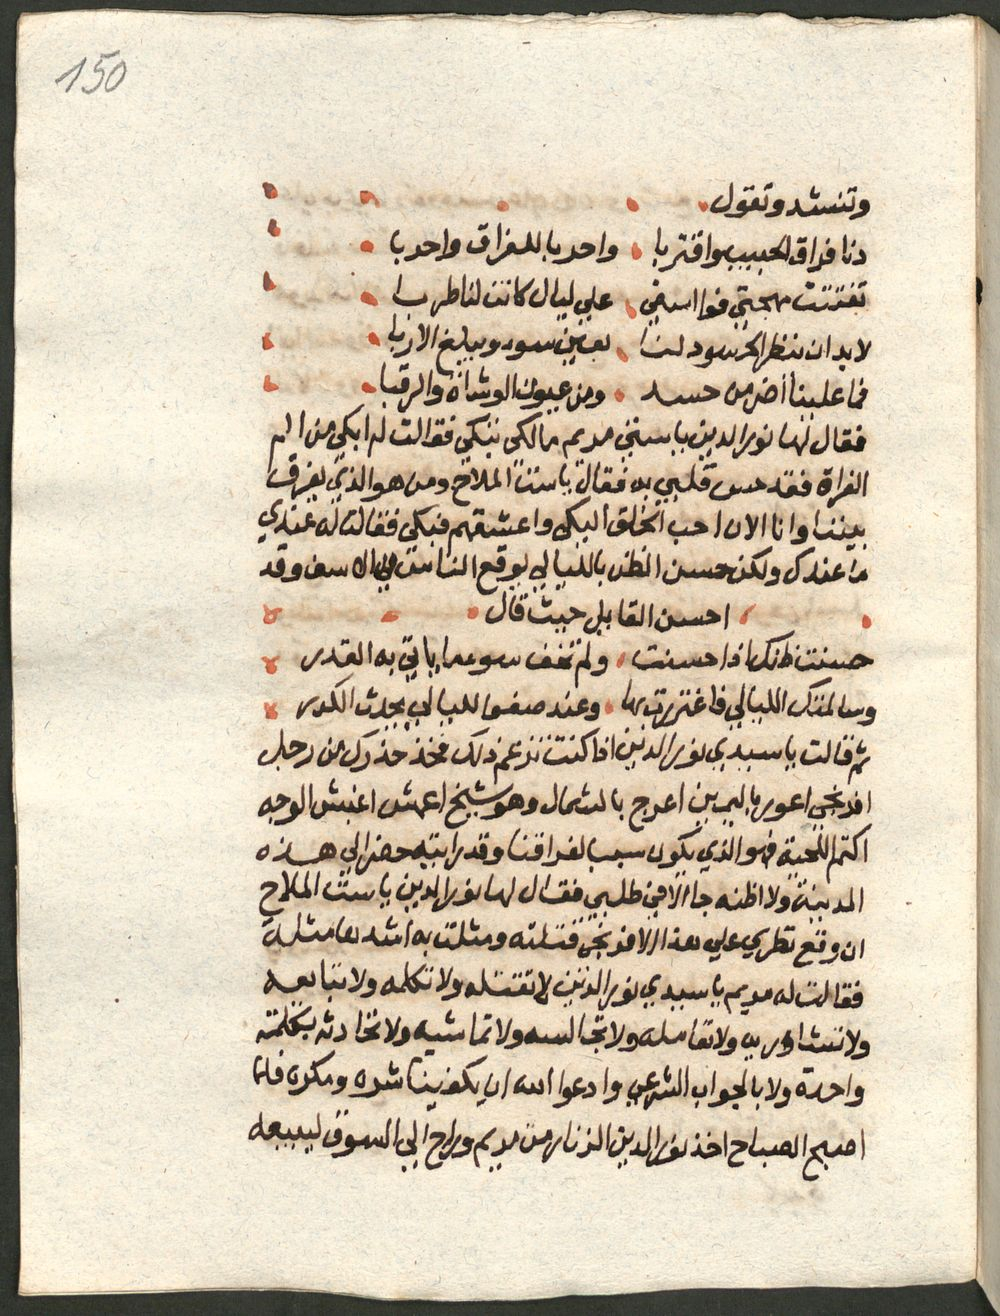 150
وتنشد وتقول
دنا فراق الحبيب واقتربا واحربا للفراق واحربا
تفتتت مهجتي فوا اسفي علي ليال كانت لنا طربا
لا بد ان ينظر الحسود لنا بعين سوء ويبلغ الاربا
فما علينا أضر من حسد ومن عيون الوشاة والرقبا
فقال لها نور الدين ياستي مريم مالكي تبكي فقالت له ابكي من الم
الفراق فقد حس قلبي به فقال ياست الملاح ومن هو الذي يفرق
بيننا وانا الان احب الخلق اليكي واعشقهم فيكي فقالت له عندي
ما عندك ولكن حسن الظن بالليالي يوقع الناس في الاسف وقد
احسن القايل حيث قال
حسنت ظنك اذا حسنت ولم تخف سوء ما ياتي به القدر
وسالمتك الليالي فاغتررت بها وعند صفو الليالي يحدث الكدر
ثم قالت ياسيدي نور الدين اذا كنت تزعم ذلك فخذ حذرك من رجل
افرنجي اعور باليمين اعرج بالشمال وهو شيخ اعمش اغبش الوجه
اكتم اللحية فهو الذي يكون سببا لفراقنا وقد رايته حضر الي هذه
المدينة ولا اظنه جا الا في طلبي فقال لها نور الدين ياست الملاح
ان وقع نظري علي هذا الافرنجي قتلته ومثلت به اشد ما مثلة
فقالت له مريم ياسيدي نور الدين لا تقتله ولا تكلمه ولا تبايعه
ولا تشاوره ولا تعامله ولا تجالسه ولا تماشيه ولا تحادثه بكلمة
واحدة ولا بالجواب الشرعي وادعوا الله ان يكفينا شره ومكره فلما
اصبح الصباح اخذ نور الدين الزنار من مريم وراح الي السوق ليبيعه